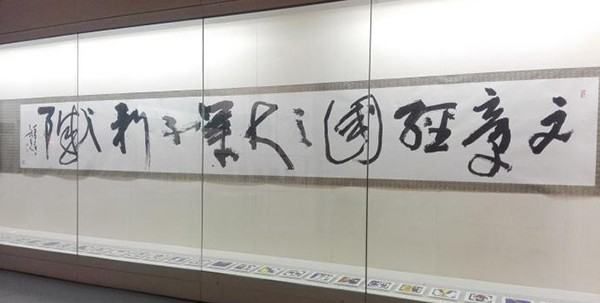 文章經國之大業不朽之盛事